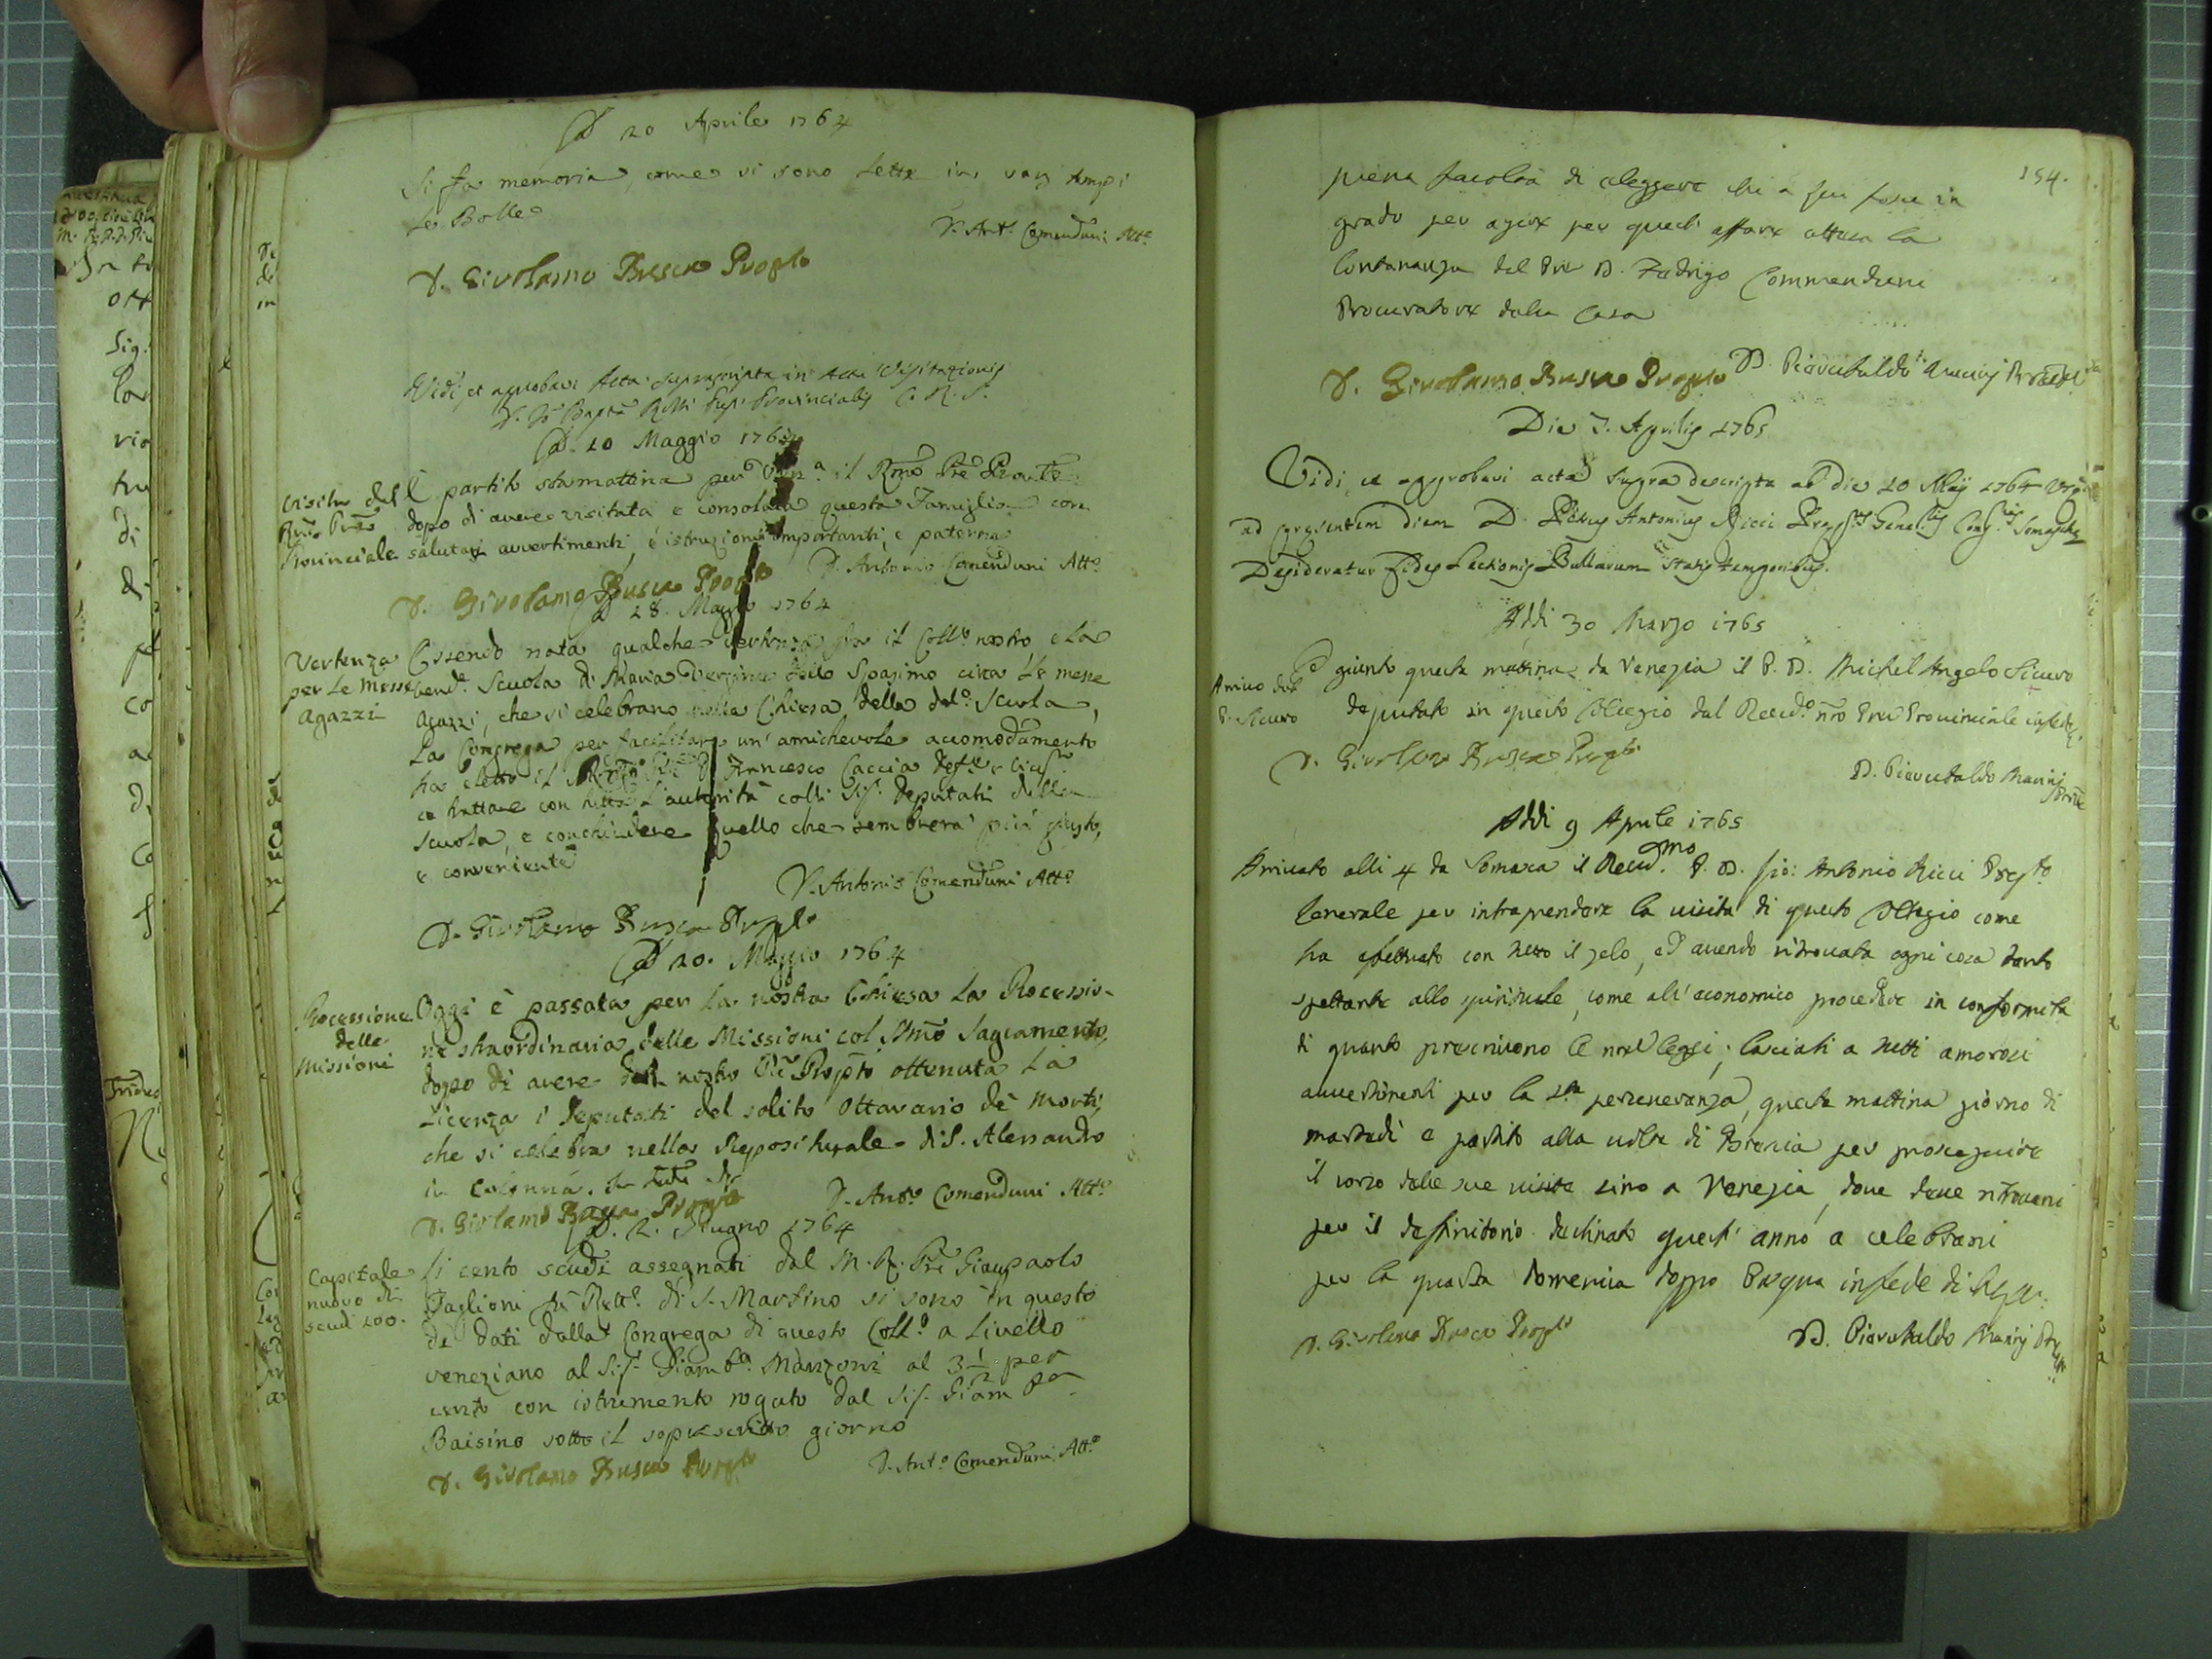 A 20 Aprile 1764
Si fa memoria, come si sono lette in varj tempi
le Bolle
D. Ant.o Comenduni Att.o
D. Girolamo Rusca Prop.to
Vidi, et approbavi Acta suprascripta in actu Visitationis
D. Jo. Bapta Rossi Provincialis C. R. S.
A 10 Maggio 1764
Visita del
Rmo Pre
Provinciale
È partito stamattina per Ven.a il Rmo Pre Prov.le
dopo di avere visitata e consolata questa Famiglia con
salutari avvertimenti, e istruzioni importanti, e paterne
D. Antonio Comenduni Att.o
D. Girolamo Rusca Prop.to
A 28. Maggio 1764
Vertenza
per le messe
Agazzi
Essendo nata qualche vertenza fra il Coll.o nostro e la
vend.a Scuola di Maria Vergine dello Spasimo circa le messe
Agazzi, che si celebrano nella Chiesa della det.a Scuola,
la Congrega per facilitare un' amichevole accomodamento
ha eletto il Pre D. Francesco Caccia
a trattare con tutta l'autorità colli Sig. Deputati della
Scuola, e conchiudere quello che sembrerà più giusto,
e conveniente
D. Antonio Comenduni Att.o
D. Girolamo Rusca Prop.to
A 20. Maggio 1764
Processione
delle
Missioni
Oggi è passata per la nostra Chiesa la Processio-
ne straordinaria delle Missioni col Smo Sagramento,
dopo di avere dal nostro Pre Propto ottenuta la
Licenza i Deputati del solito Ottavario de' Morti,
che si celebra nella Repositurale di S. Alessandro
in Colonna. In fede di
D. Ant.o Comenduni Att.o
D. Girolamo Rusca Prop.to
A. 2. Giugno 1764
Capitale
nuovo di
scudi 100.
Li cento scudi assegnati dal M. R. Pre Gianpaolo
Taglioni Rett.e di S. Martino si sono in questo
dì dati dalla Congrega di questo Coll.o a Livello
veneziano al Sig. Giamb.a Manzoni al 3 1/2 per
cento con istrumento rogato dal Sig. Giam Ba
Baisino sotto il soprascritto giorno
D. Ant.o Comenduni Att.o
D. Girolamo Rusca Prop.to
154.
piena facoltà di eleggere chi a fu fosse in
grado per agire per quest' affare attesa la
lontananza del Pre D. Fadrigo Commenduni
Procuratore dalla Casa
D. Girolamo Rusca Prop.to
D. Piarubaldo Marinj
Die 7. Aprilis 1765
Vidi, et approbavi acta supra descripta ab die 10 Maij 1764 usque
ad presentem diem D. Antonius Ricci Prepts Genelis Congnis Somasche
Desideratur fides Lectionis Bullarum statis temporibus.
Addi 30 Marzo 1765
Arrivo del
P. Sicuro
È giunto questa mattina da Venezia il P. D. Michel Angelo Sicuro
deputato in questo Collegio dal Revd.o nro Pre Provinciale in fede
D. Girolamo Rusca Prop.to
D. Piarubaldo Marinj
Addi 9 Aprile 1765
Arrivato alli 4 da Somasca il Revd.mo P. D. Gio: Antonio Ricci Prep.to
Generale per intraprendere la visita di questo Collegio come
ha effettuato con tutto il zelo, ed avendo ritrovata ogni cosa tanto
spettante allo spirituale, come all' economico procedere in conformità
di quanto prescrivono le nre leggi; lasciati a tutti amorosi
avvertimenti per la sta perseveranza, questa mattina giorno di
martedì è partito alla volta di Brescia per proseguire
il corso delle sue visite sino a Venezia, dove deve ritrovarsi
per il deffinitorio destinato quest' anno a celebrarsi
per la quarta domenica doppo Pasqua in fede di
D. Girolamo Rusca Prop.to
D. Piarubaldo Marinj